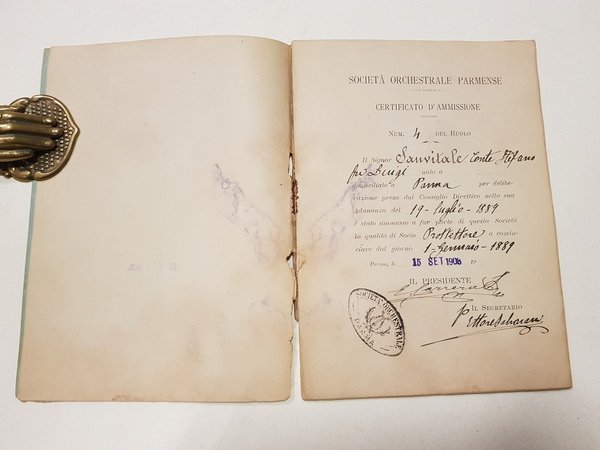 SOCIETÀ ORCHESTRALE PARMENSE
CERTIFICATO D'AMMISSIONE
NUM. 4 DEL RUOLO
Il Signor Sanvitale Conte Stefano
fu Luigi nato a
domiciliato a Parma per delibe-
razione presa dal Consiglio Direttivo nella sua
Adunanza del 19-Luglio-1889
è stato ammesso a far parte di questa Società
in qualità di Socio Protettore a comin-
ciare dal giorno 1-Gennaio-1889
Parma, li 15 SET 1908 19
IL PRESIDENTE
IL SEGRETARIO
Ettore
SOCIETÀ ORCHESTRALE
PARMA